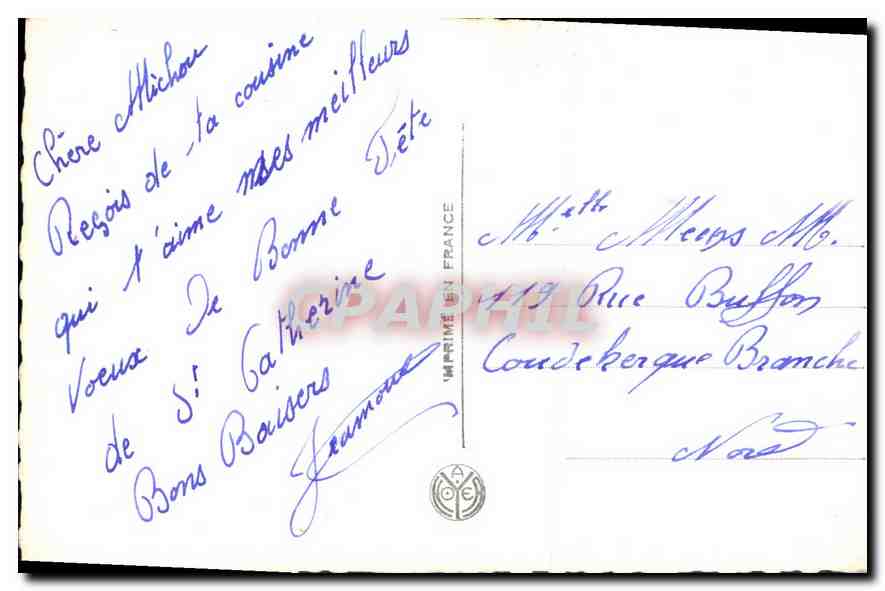 Chère Michou
Reçois de ta cousine
qui t'aime mses meilleurs
voeux De Bonne Fête
de St Catherine
Bons Baisers
IMPRIMÉ EN FRANCE
CPAPHIL
Melle Meens M.
119 Rue Buffon
Coudekerque Branche
Nord